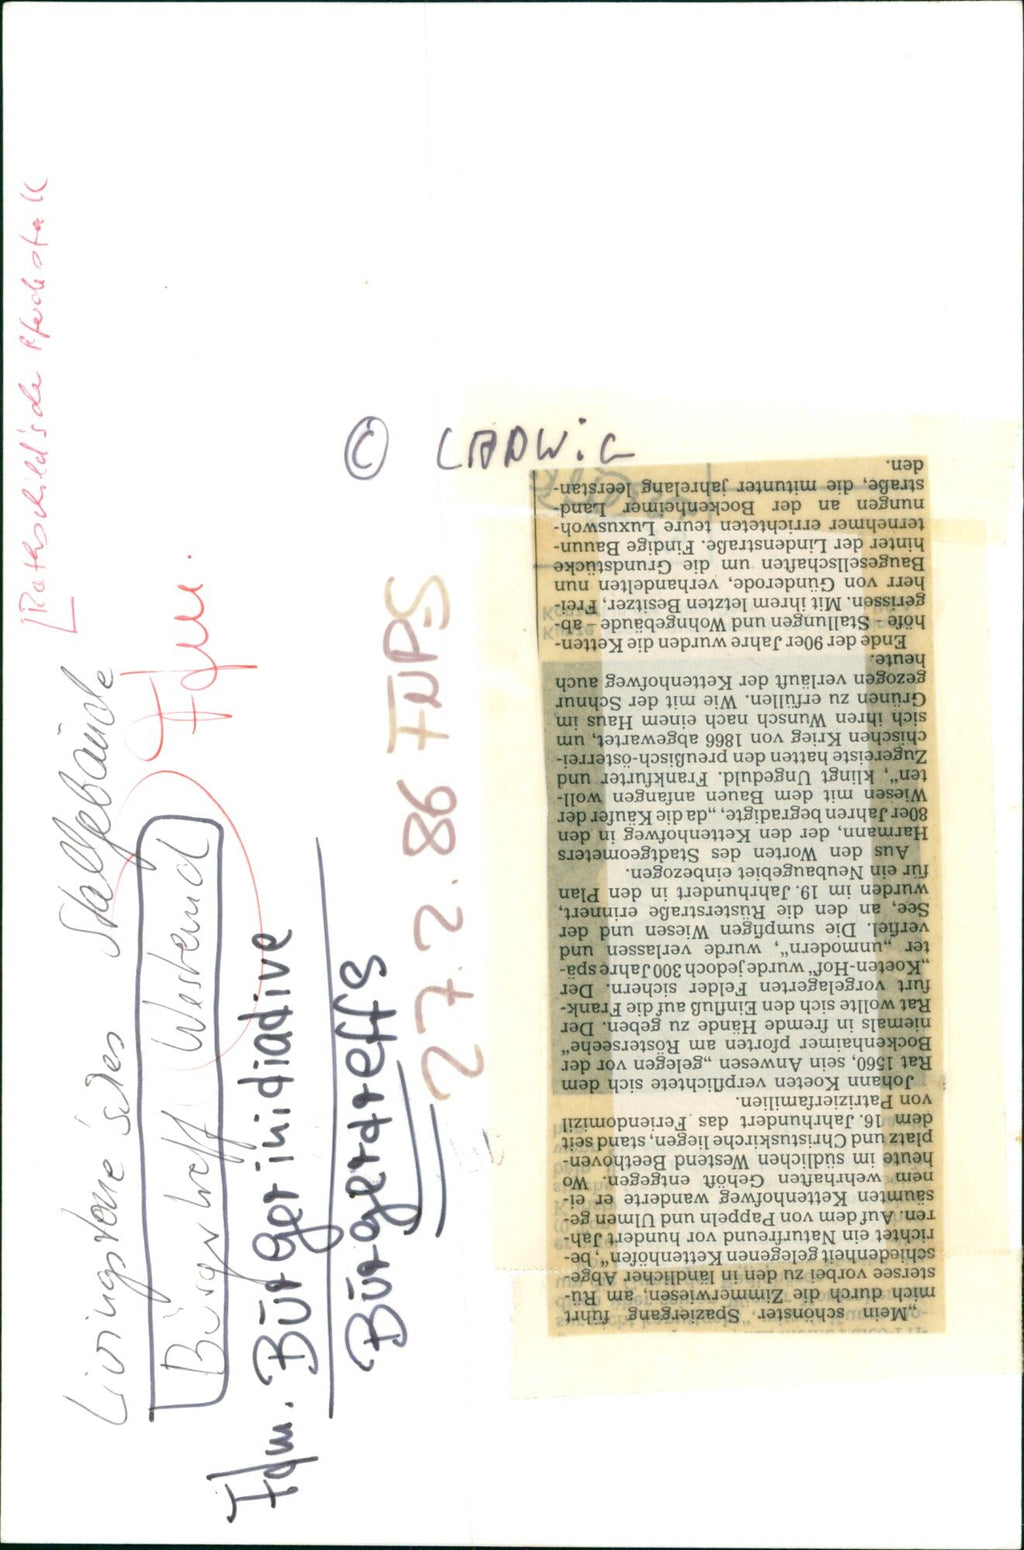 [Rothschild'sche Pferdestall
Livingstone'sches Stallgebäude
Bürgertreff Westend
Ffm.
Ffm. Bürgerinidiadive
Bürgertreffs
27.2.86 FNPS
© LADWiG
„Mein schönster Spaziergang führt
mich durch die Zimmerwiesen, am Rü-
stersee vorbei zu den in ländlicher Abge-
schiedenheit gelegenen Kettenhöfen“, be-
richtet ein Naturfreund vor hundert Jah-
ren. Auf dem von Pappeln und Ulmen ge-
säumten Kettenhofweg wanderte er ei-
nem wehrhaften Gehöft entgegen. Wo
heute im südlichen Westend Beethoven-
platz und Christuskirche liegen, stand seit
dem 16. Jahrhundert das Feriendomizil
von Patrizierfamilien.
Johann Koeten verpflichtete sich dem
Rat 1560, sein Anwesen „gelegen vor der
Bockenhaimer pforten am Rösterseehe“
niemals in fremde Hände zu geben. Der
Rat wollte sich den Einfluß auf die Frank-
furt vorgelagerten Felder sichern. Der
„Koeten-Hof“ wurde jedoch 300 Jahre spä-
ter „unmodern“, wurde verlassen und
verfiel. Die sumpfigen Wiesen und der
See, an den die Rüsterstraße erinnert,
wurden im 19. Jahrhundert in den Plan
für ein Neubaugebiet einbezogen.
Aus den Worten des Stadtgeometers
Harmann, der den Kettenhofweg in den
80er Jahren begradigte, „da die Käufer der
Wiesen mit dem Bauen anfangen woll-
ten“, klingt Ungeduld. Frankfurter und
Zugereiste hatten den preußisch-österrei-
chischen Krieg von 1866 abgewartet, um
sich ihren Wunsch nach einem Haus im
Grünen zu erfüllen. Wie mit der Schnur
gezogen verläuft der Kettenhofweg auch
heute.
Ende der 90er Jahre wurden die Ketten-
höfe – Stallungen und Wohngebäude – ab-
gerissen. Mit ihrem letzten Besitzer, Frei-
herr von Günderode, verhandelten nun
Baugesellschaften um die Grundstücke
hinter der Lindenstraße. Findige Bauun-
ternehmer errichteten teure Luxuswoh-
nungen an der Bockenheimer Land-
straße, die mitunter jahrelang leerstan-
den.